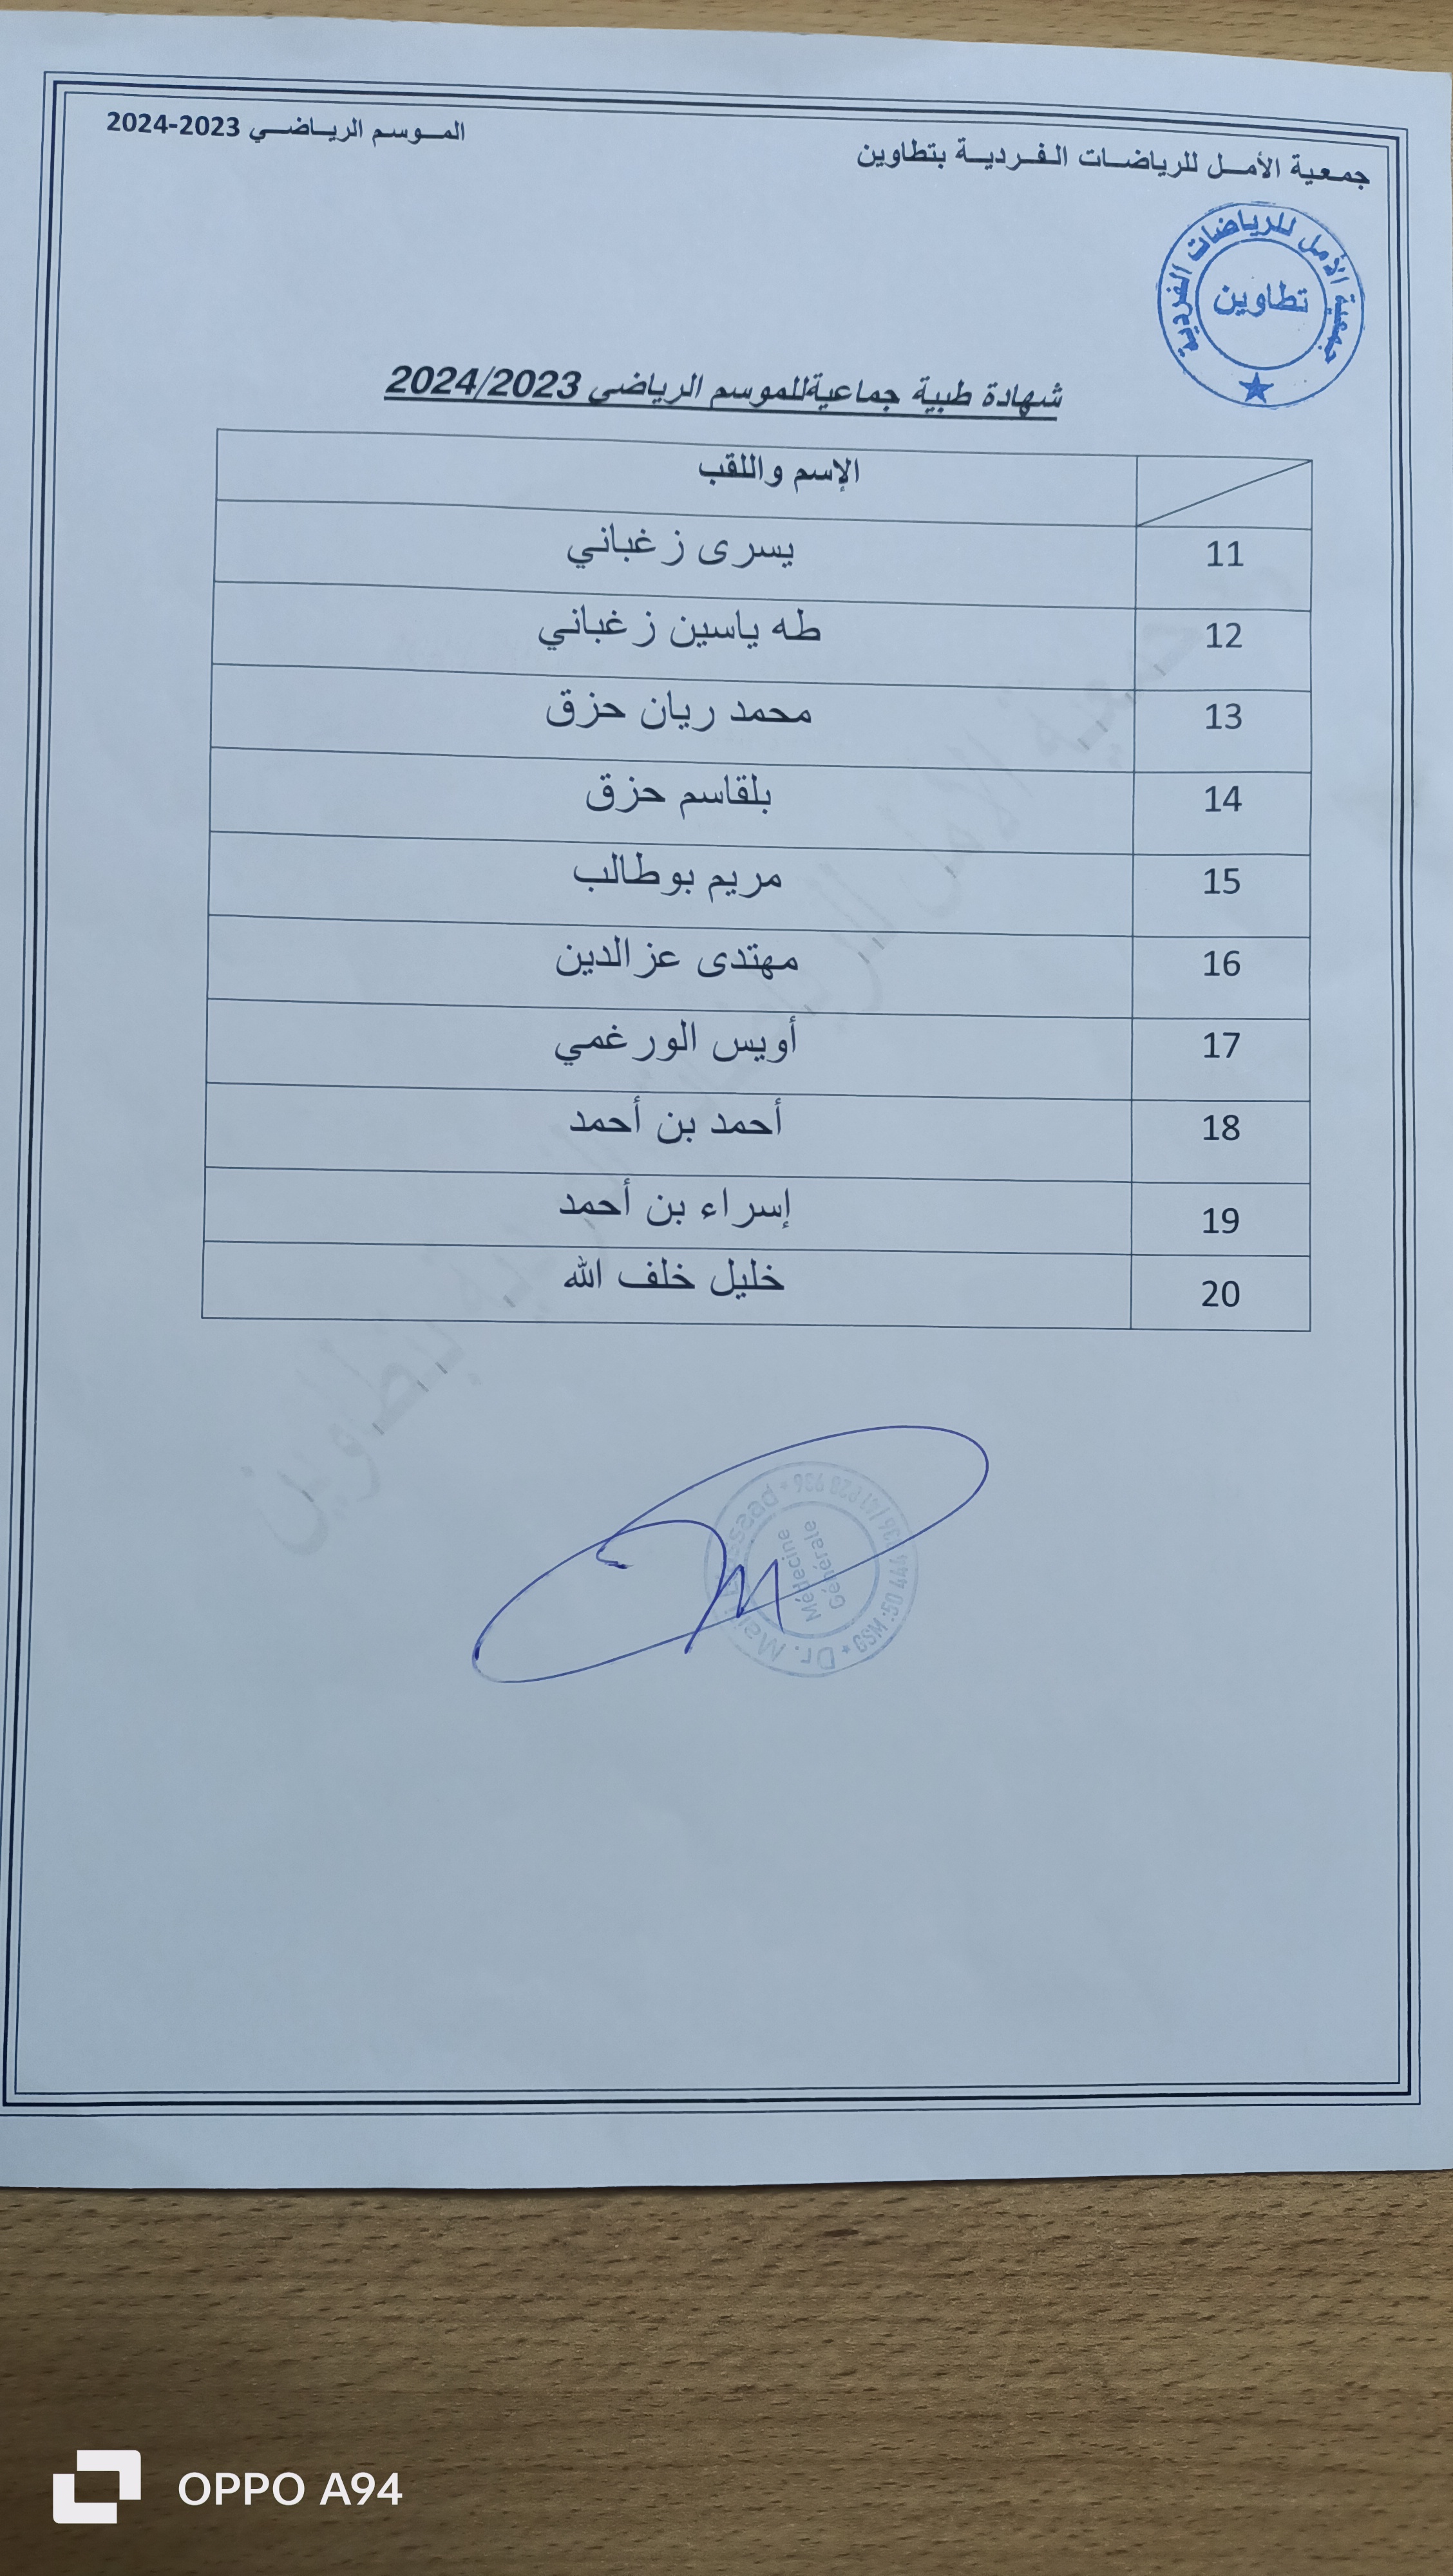 جمعية الأمل للرياضات الفردية بتطاوين
الموسم الرياضي 2023-2024
جمعية الأمل للرياضات الفردية
تطاوين
شهادة طبية جماعيةللموسم الرياضي 2024/2023
الإسم واللقب
11 يسرى زغباني
12 طه ياسين زغباني
13 محمد ريان حزق
14 بلقاسم حزق
15 مريم بوطالب
16 مهتدى عزالدين
17 أويس الورغمي
18 أحمد بن أحمد
19 إسراء بن أحمد
20 خليل خلف الله
جمعية الأمل للرياضات الفردية بتطاوين
Dr.
Médecine
Générale
GSM:
OPPO A94